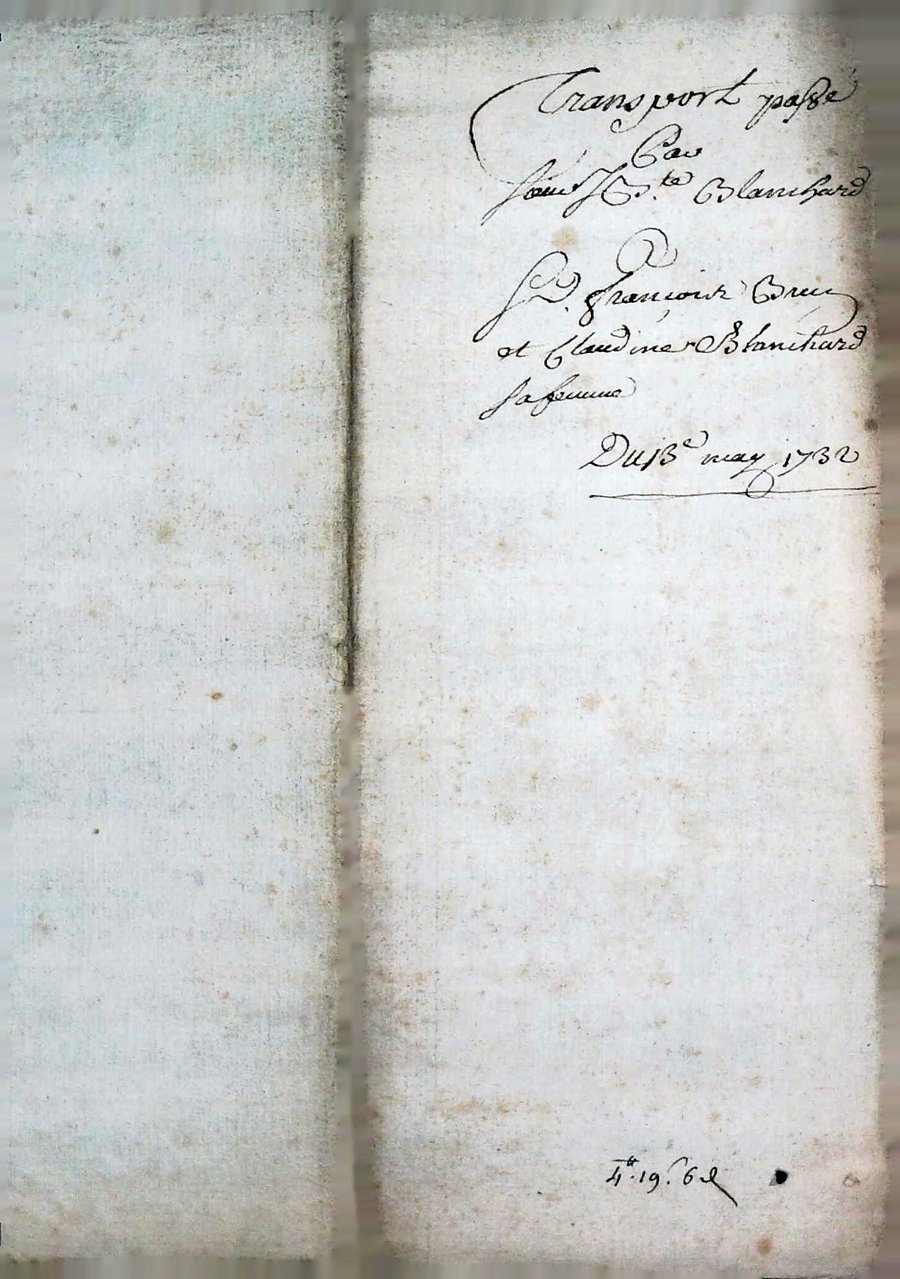 Transport passé
Par
J B.te Blanchard
A
S.r François Brun
et Claudine Blanchard
sa femme
Du 13e may 1732
4lt. 19s. 6d